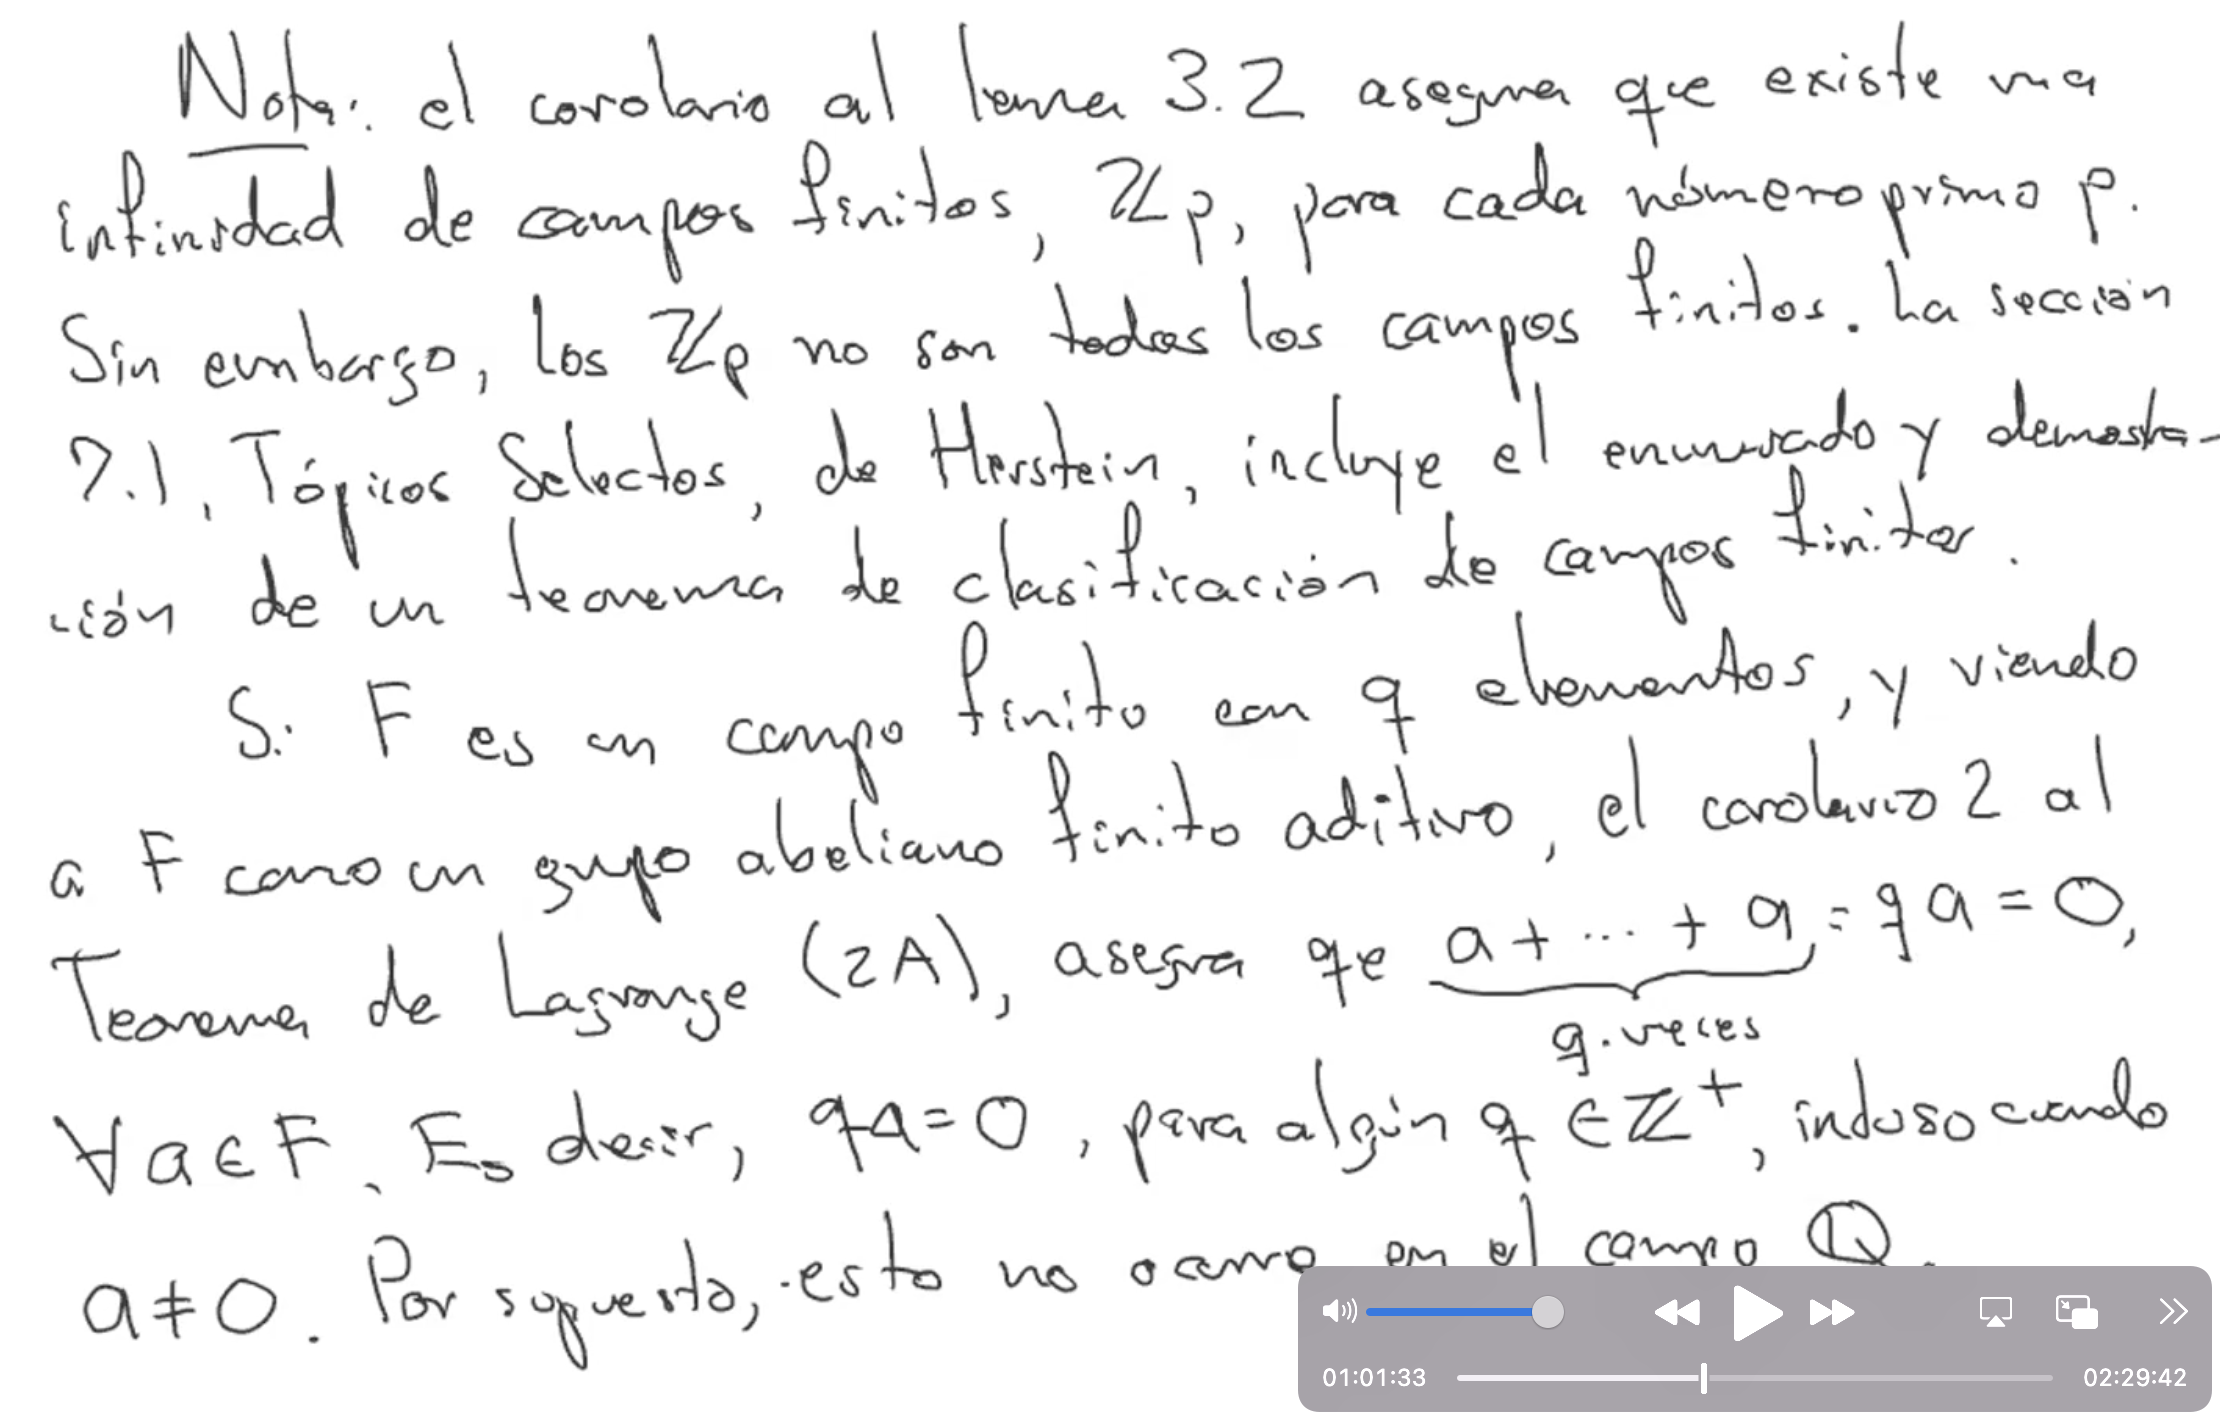 Nota: el corolario al lema 3.2 asegura que existe una
infinidad de campos finitos, ℤp, para cada número primo p.
Sin embargo, los ℤp no son todos los campos finitos. La sección
7.1, Tópicos Selectos, de Herstein, incluye el enunciado y demostra-
ción de un teorema de clasificación de campos finitos.
Si F es un campo finito con q elementos, y viendo
a F como un grupo abeliano finito aditivo, el corolario 2 al
Teorema de Lagrange (2A), asegura que a + ... + a = qa = 0,
q-veces
∀ a ∈ F. Es decir, qa = 0, para algún q ∈ ℤ⁺, incluso cuando
a ≠ 0. Por supuesto, esto no ocurre en el campo ℚ.
01:01:33 02:29:42